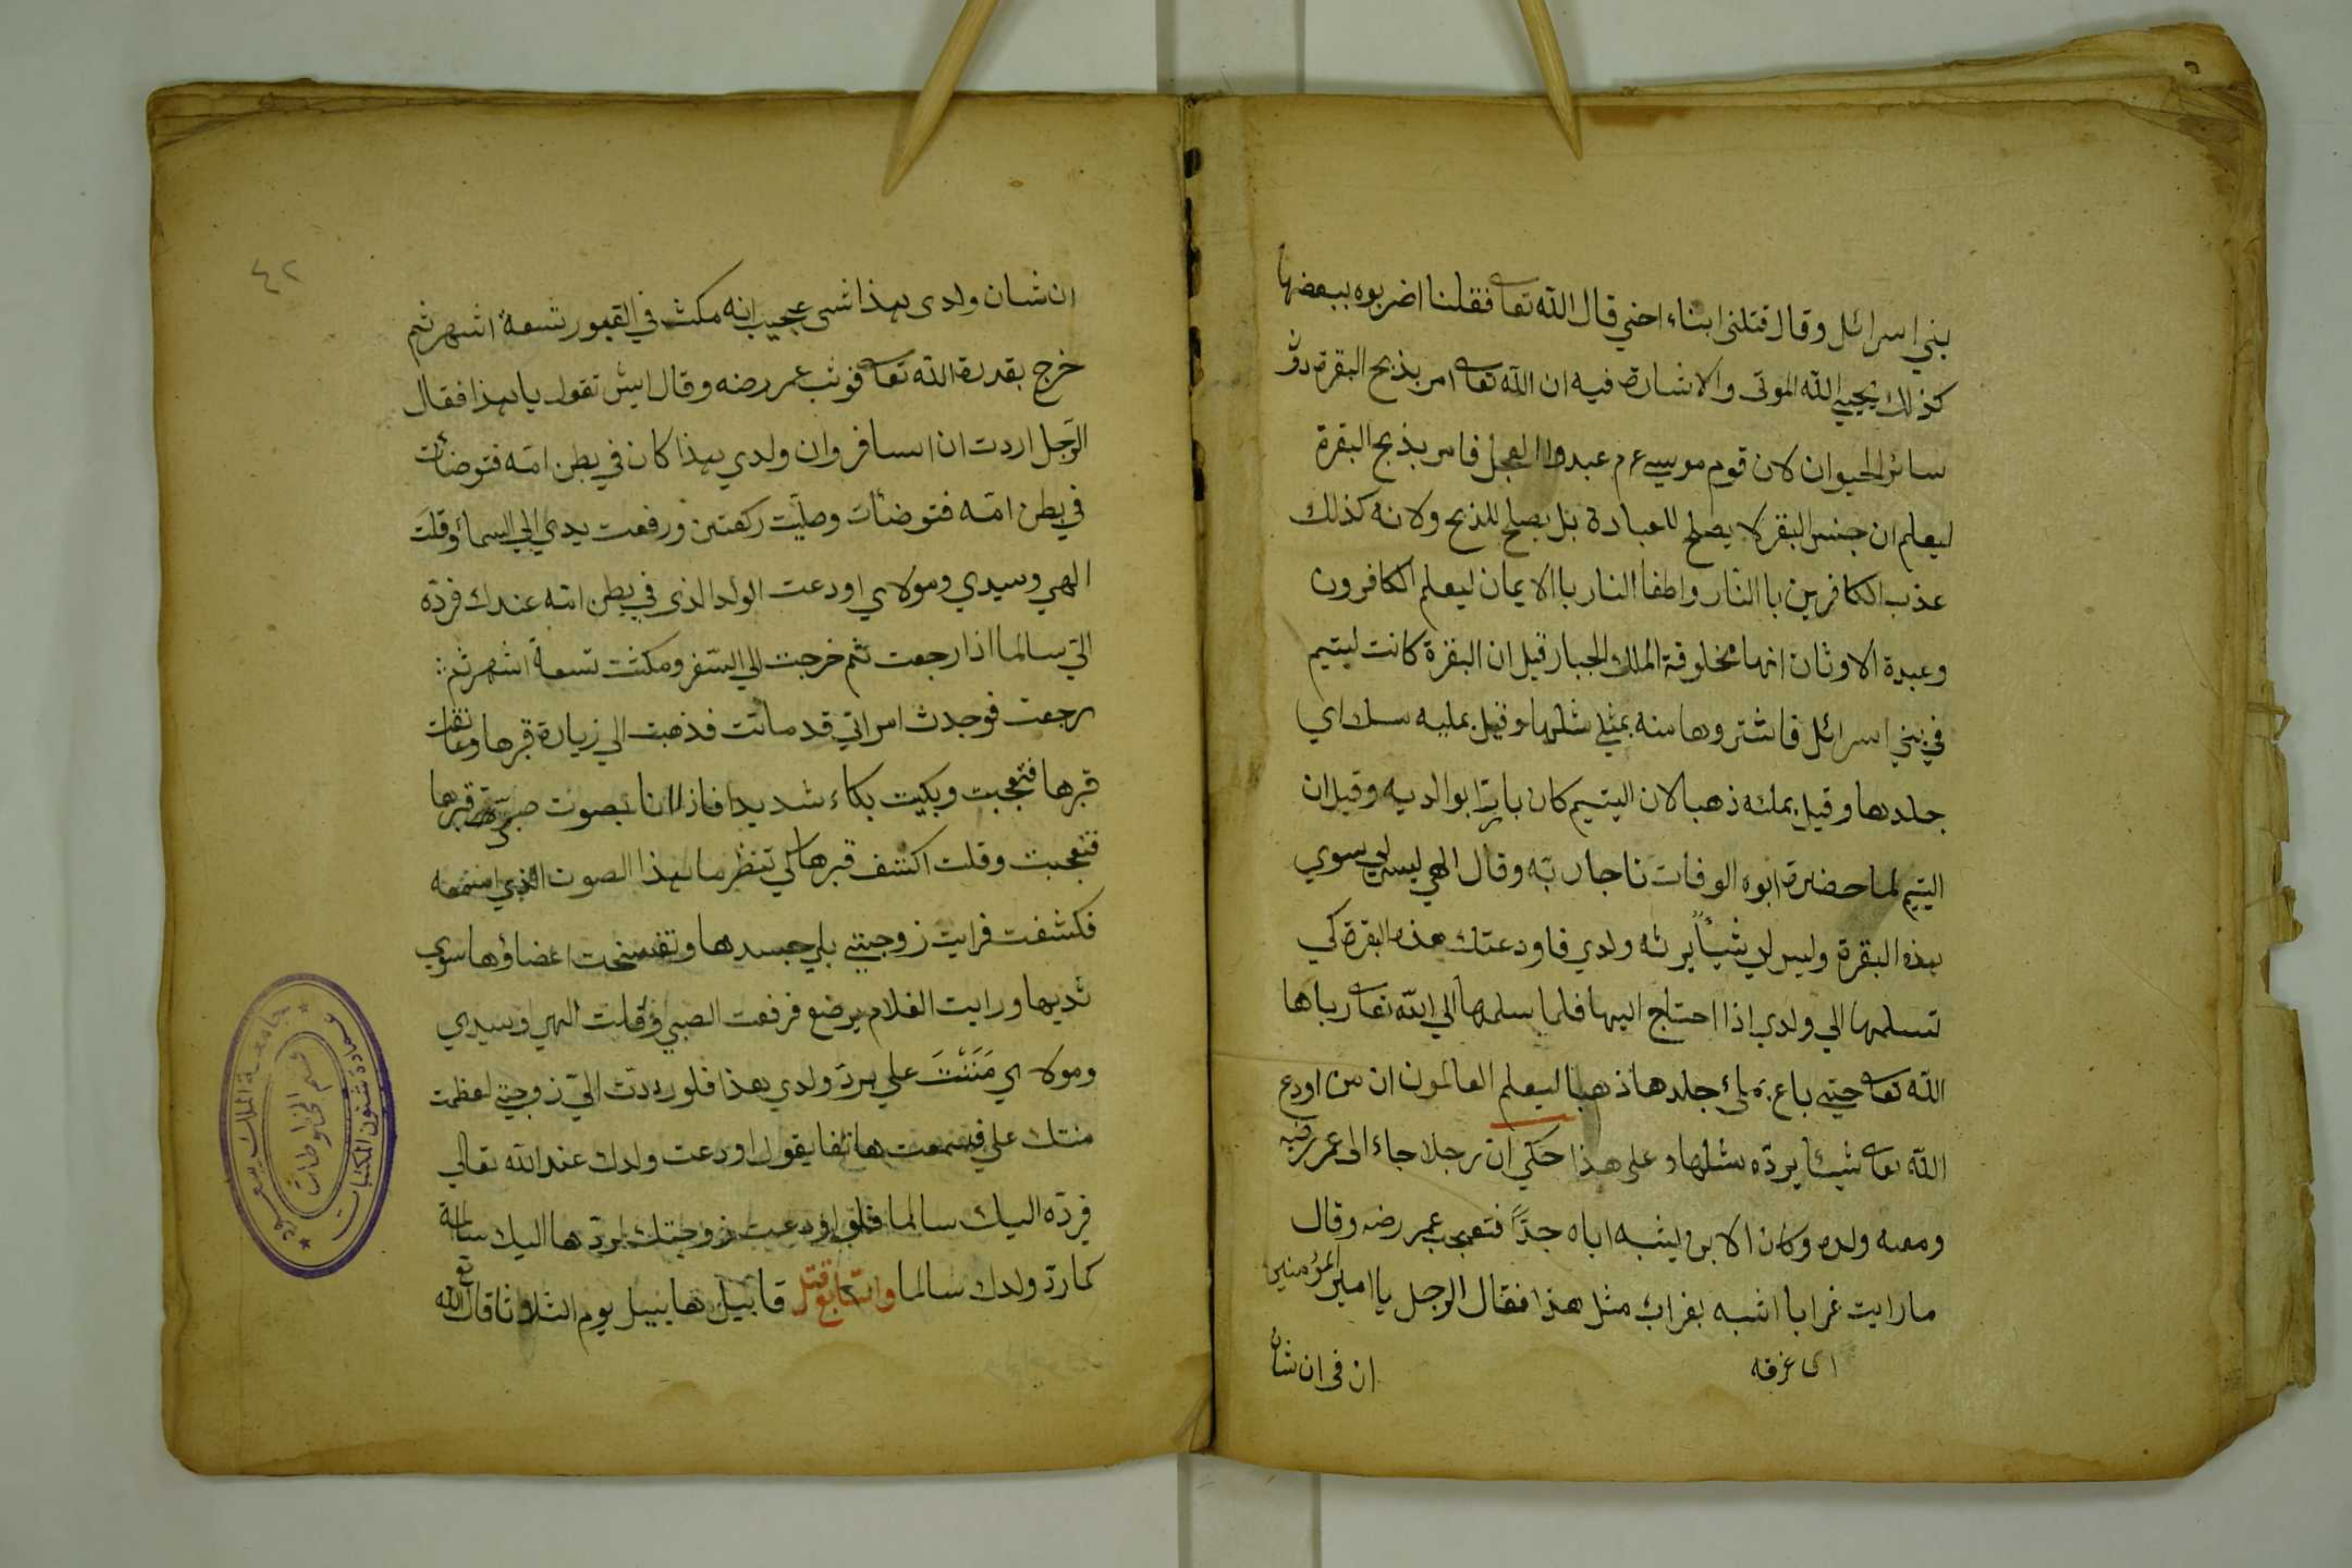 بني اسرائل وقال قتلني ابناء اخي قال الله تعا فقلنا اضربوه ببعضها
كذلك يحيي الله الموتى والاشارة فيه ان الله تعا امر بذبح البقرة دون
سائر الحيوان لان قوم موسي عم عبدوا العجل فامر بذبح البقرة
ليعلم ان جنس البقر لا يصلح للعبادة بل يصلح للذبح ولانه كذلك
عذب الكافرين باالنار واطفا النار باالايمان ليعلم الكافرون
وعبدة الاوثان انها مخلوقة الملك الجبار قيل ان البقرة كانت ليتيم
في بني اسرائل فاشتروها منه بمثلي مثلها وقيل بمليه سك اي
جلدها وقيل بملئه ذهبا لان اليتيم كان بارّا بوالديه وقيل ان
اليتيم لما حضرة ابوه الوفات ناجا ربّه وقال الهي ليس لي سوي
هذه البقرة وليس لي شيأ يرثه ولدي فاودعتك هذه البقرة كي
تسلمها الي ولدي اذا احتاج اليها فلما سلمها الي الله تعا رباها
الله تعا حتي باع بملئ جلدها ذهبا ليعلم العالمون ان من اودع
الله تعا شيئا يردّه مثلها وعلى هذا حكي ان رجلا جاء الى عمر رضه
ومعه ولده وكان الابن يشبه اباه جدّا فتعجب عمر رضه وقال
ما رايت غرابا اشبه بغراب مثل هذا فقال الرجل يا امير المؤمنين
اى غرفه
ان فى ان شان
٤٢
ان شان ولدى هذا شي عجيب انه مكث في القبور تسعة اشهر ثم
خرج بقدرة الله تعا فوثب عمر رضه وقال ايش تقول يا هذا فقال
الرّجل اردت ان اسافر وان ولدي هذا كان في بطن امّه فتوضأت
في بطن امّه فتوضأت وصلّيت ركعتين ورفعت يدي الي السماء وقلت
الهي وسيدي ومولاي اودعت الولد الذى في بطن امّه عندك فردّه
الّي سالما اذا رجعت ثم خرجت الي السّفر ومكثت تسعة اشهر ثم
رجعت فوجدت امراتي قد ماتت فذهبت الي زيارة قبرها وعانقت
قبرها فتعجبت وبكيت بكاء شديدا فاذا انا بصوت صبي قبرها
فتعجبت وقلت اكشف قبرها لي تنظر ما هذا الصوت الذي اسمعه
فكشفت فرايت زوجتي بلي جسدها وتفسخت اعضاؤها سوي
ثديها ورايت الغلام يرضع فرفعت الصبي وقلت الهي وسيدي
ومولاي مَنَنْتَ علي بردّ ولدي هذا فلو رددت الّي زوجتي لعظمت
منتك علي فسمعت هاتفا يقول اودعت ولدك عند الله تعالي
فردّه اليك سالما فلو اودعت زوجتك لردّها اليك سالمة
كما ردّ ولدك سالما وانّما قتل قابيل هابيل يوم الثلاوثا قال الله تع
جامعة الملك سعود
عمادة شئون المكتبات
قسم المخطوطات